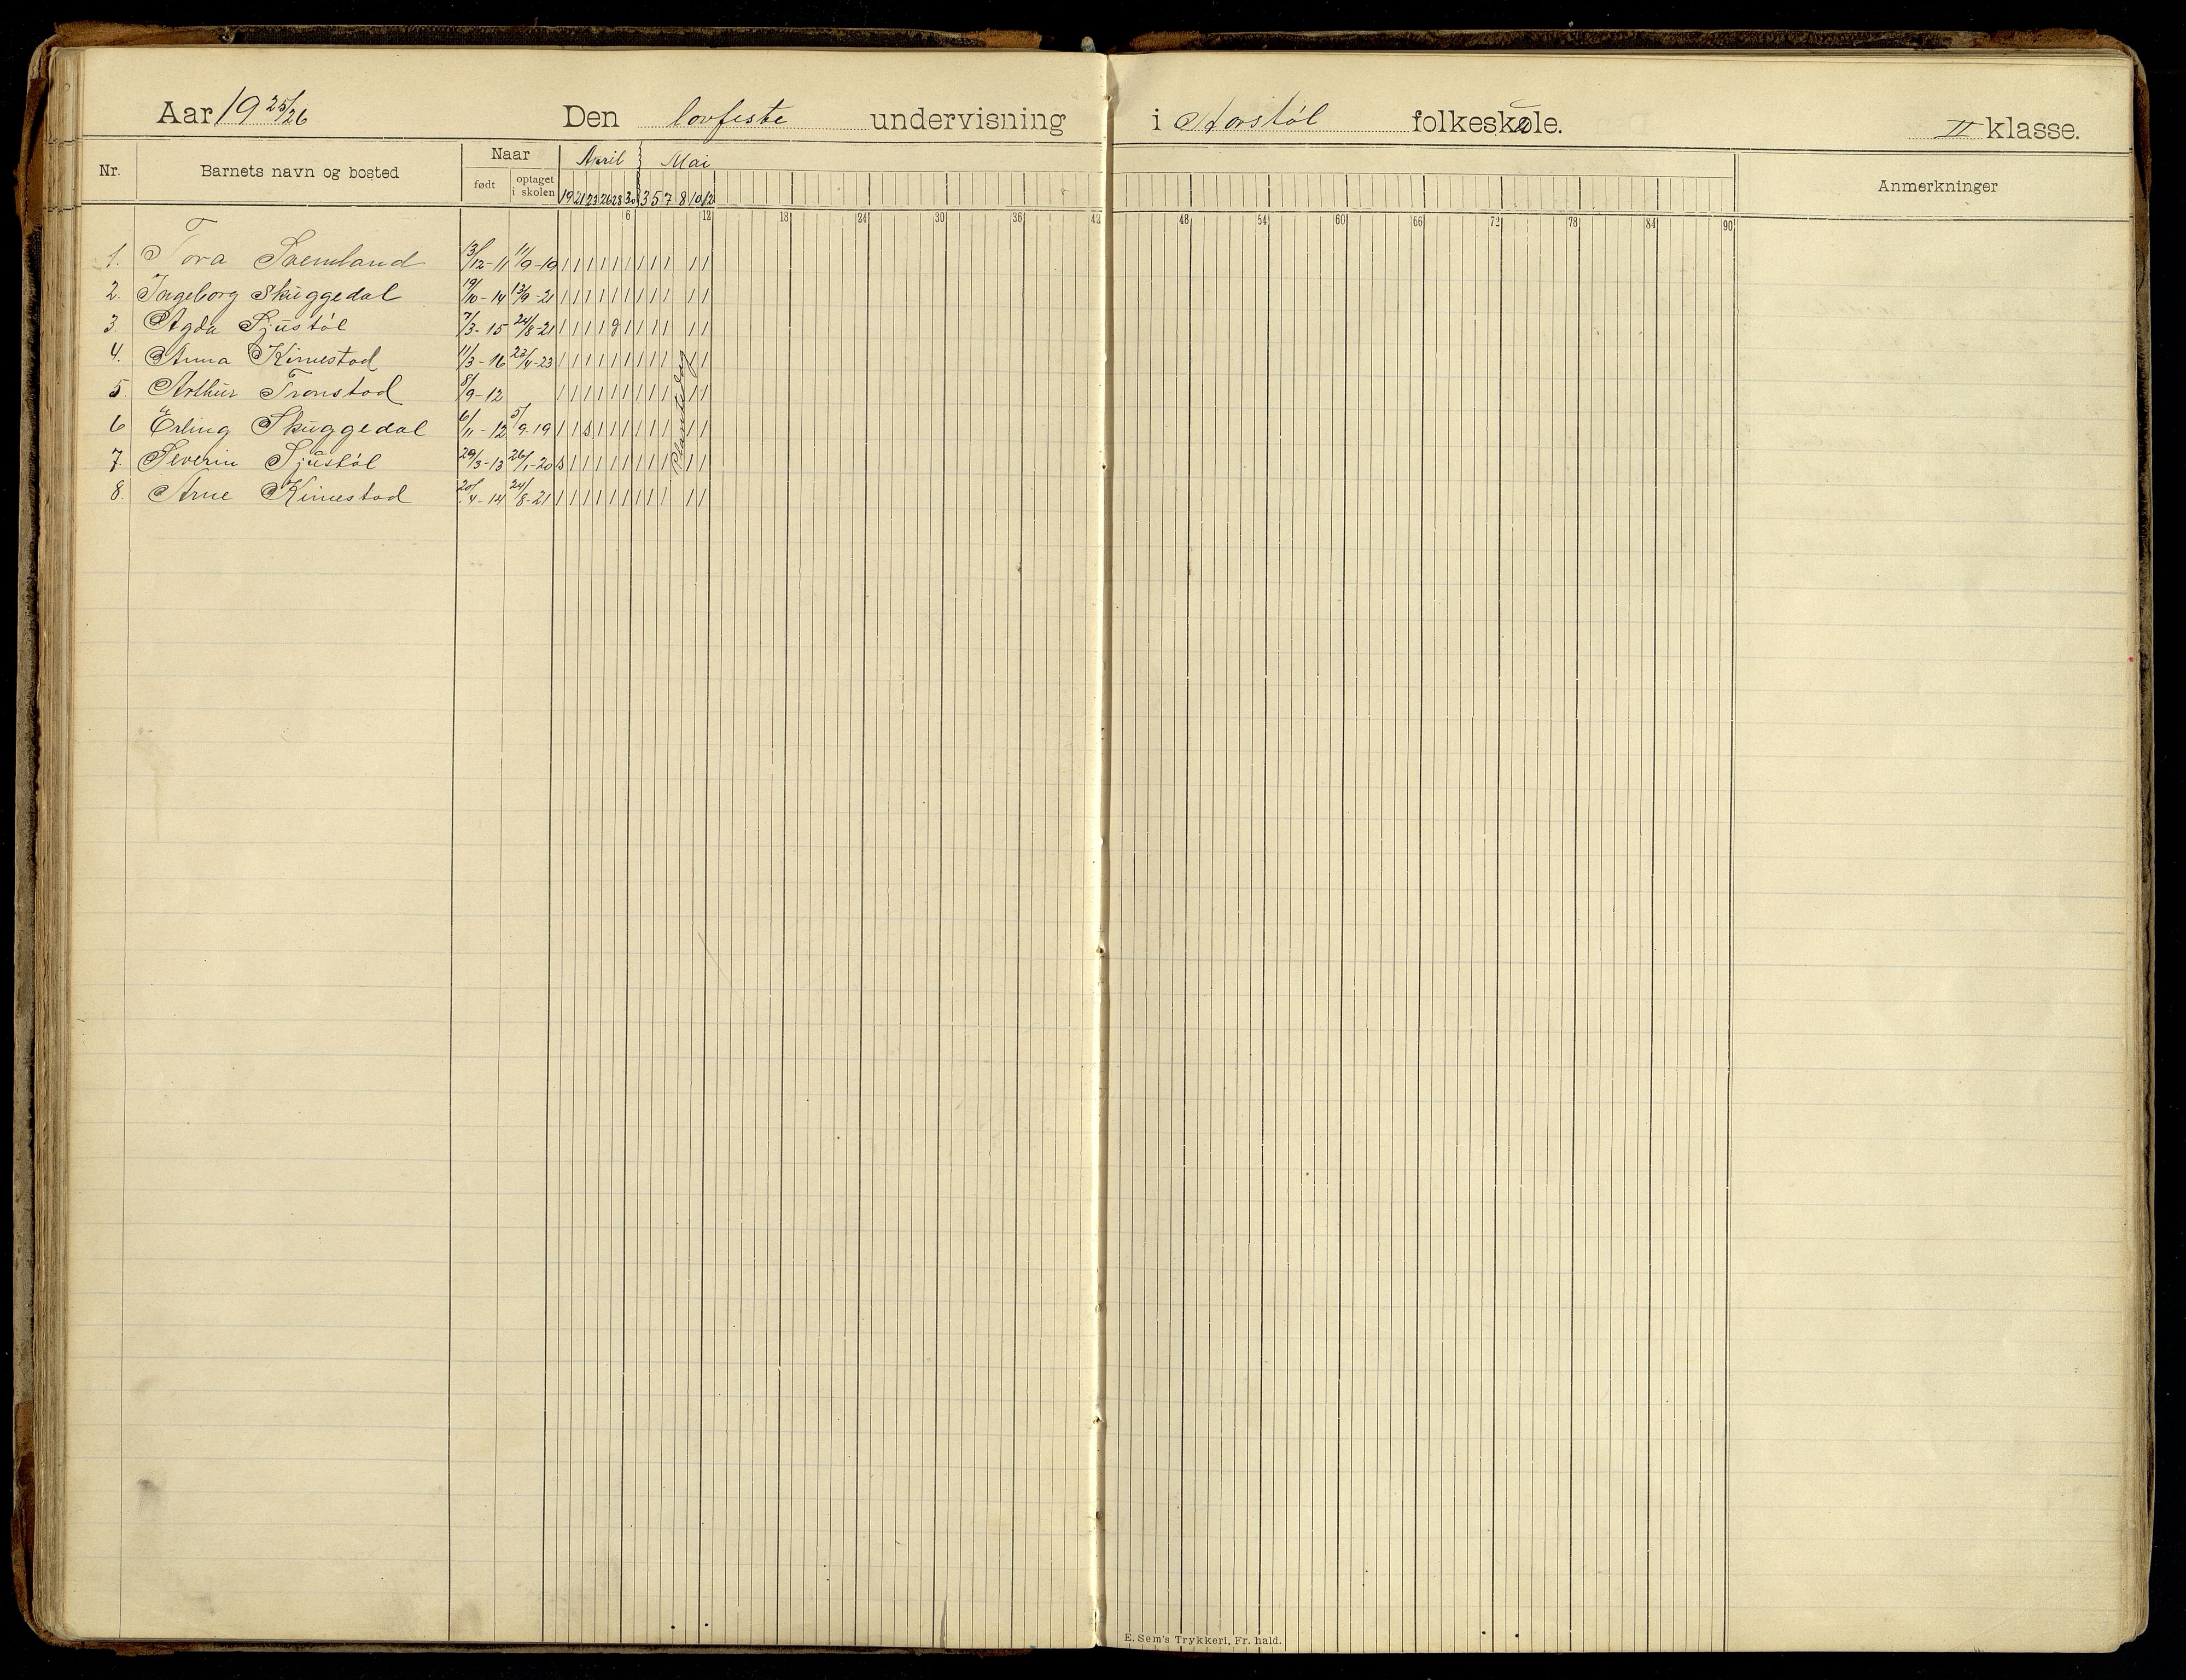 Aar 19 25/26 Den lovfeste undervisning i Storstøl folkeskole. II klasse.
Nr. Barnets navn og bosted Naar født optaget i skolen April Mai Anmerkninger
19 21 23 26 28 30 3 5 7 8 10 12
6 12 18 24 30 36 42 48 54 60 66 72 78 84 90
1. Tora 13/12-11 11/9-19 / / / / / / / / / / /
2. Ingeborg Skuggedal 19/10-14 13/9-21 / / / / / / / / / / /
3. Agda Ljustøl 7/3-15 24/8-21 / / / / g / / / / / /
4. Anna Kimestad 11/3-16 23/4-23 / / / / / / / / / / /
5. Arthur Tronstad 8/9-12 / / / / / / / / / / /
6 Erling Skuggedal 6/11-12 5/9-19 / / s / / / / / / / /
7. Severin Ljustøl 29/3-13 26/1-20 s / / / / / / / / / /
8. Arne Kimestad 20/4-14 24/8-21 / / / / / / / / / / /
Plantedag
E. Sem's Trykkeri, Fr. hald.